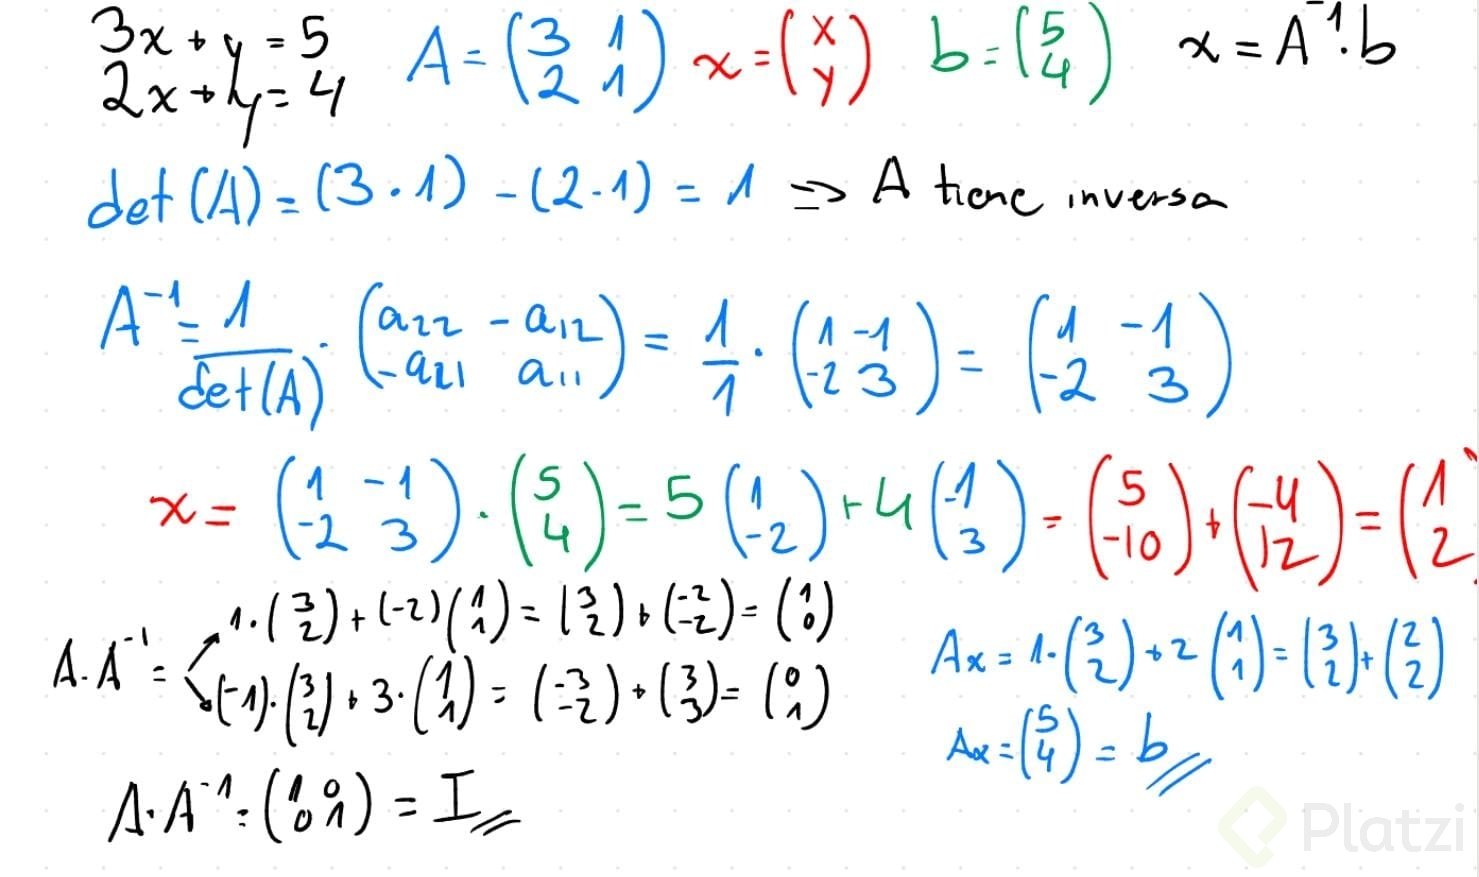 3x + y = 5
2x + y = 4
A = (3 1
2 1)
x = (x
y)
b = (5
4)
x = A⁻¹·b
det(A) = (3·1) - (2·1) = 1 => A tiene inversa
A⁻¹ = 1/det(A) · (a22 -a12
-a21 a11) = 1/1 · (1 -1
-2 3) = (1 -1
-2 3)
x = (1 -1
-2 3) · (5
4) = 5 (1
-2) + 4 (-1
3) = (5
-10) + (-4
12) = (1
2)
A·A⁻¹ =
1·(3
2) + (-2)(1
1) = (3
2) + (-2
-2) = (1
0)
(-1)·(3
2) + 3·(1
1) = (-3
-2) + (3
3) = (0
1)
A·A⁻¹ = (1 0
0 1) = I
Ax = 1·(3
2) + 2 (1
1) = (3
2) + (2
2)
Ax = (5
4) = b
Platzi